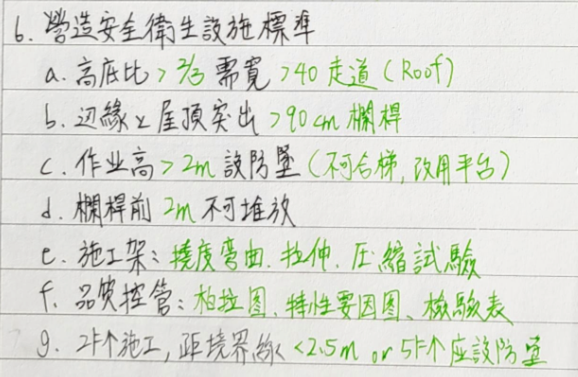 6. 營造安全衛生設施標準
a. 高底比 > 2/3 需寬 >40 走道 (Roof)
b. 边緣 & 屋頂突出 >90cm 欄桿
c. 作业高 >2m 設防墜 (不可合梯, 改用平台)
d. 欄桿前 2m 不可堆放
e. 施工架: 撓度弯曲. 拉伸. 压縮試驗
f. 品質控管: 柏拉图、特性要因图、檢驗表
g. 2F↑施工, 距境界線 <2.5m or 5F↑应設防墜